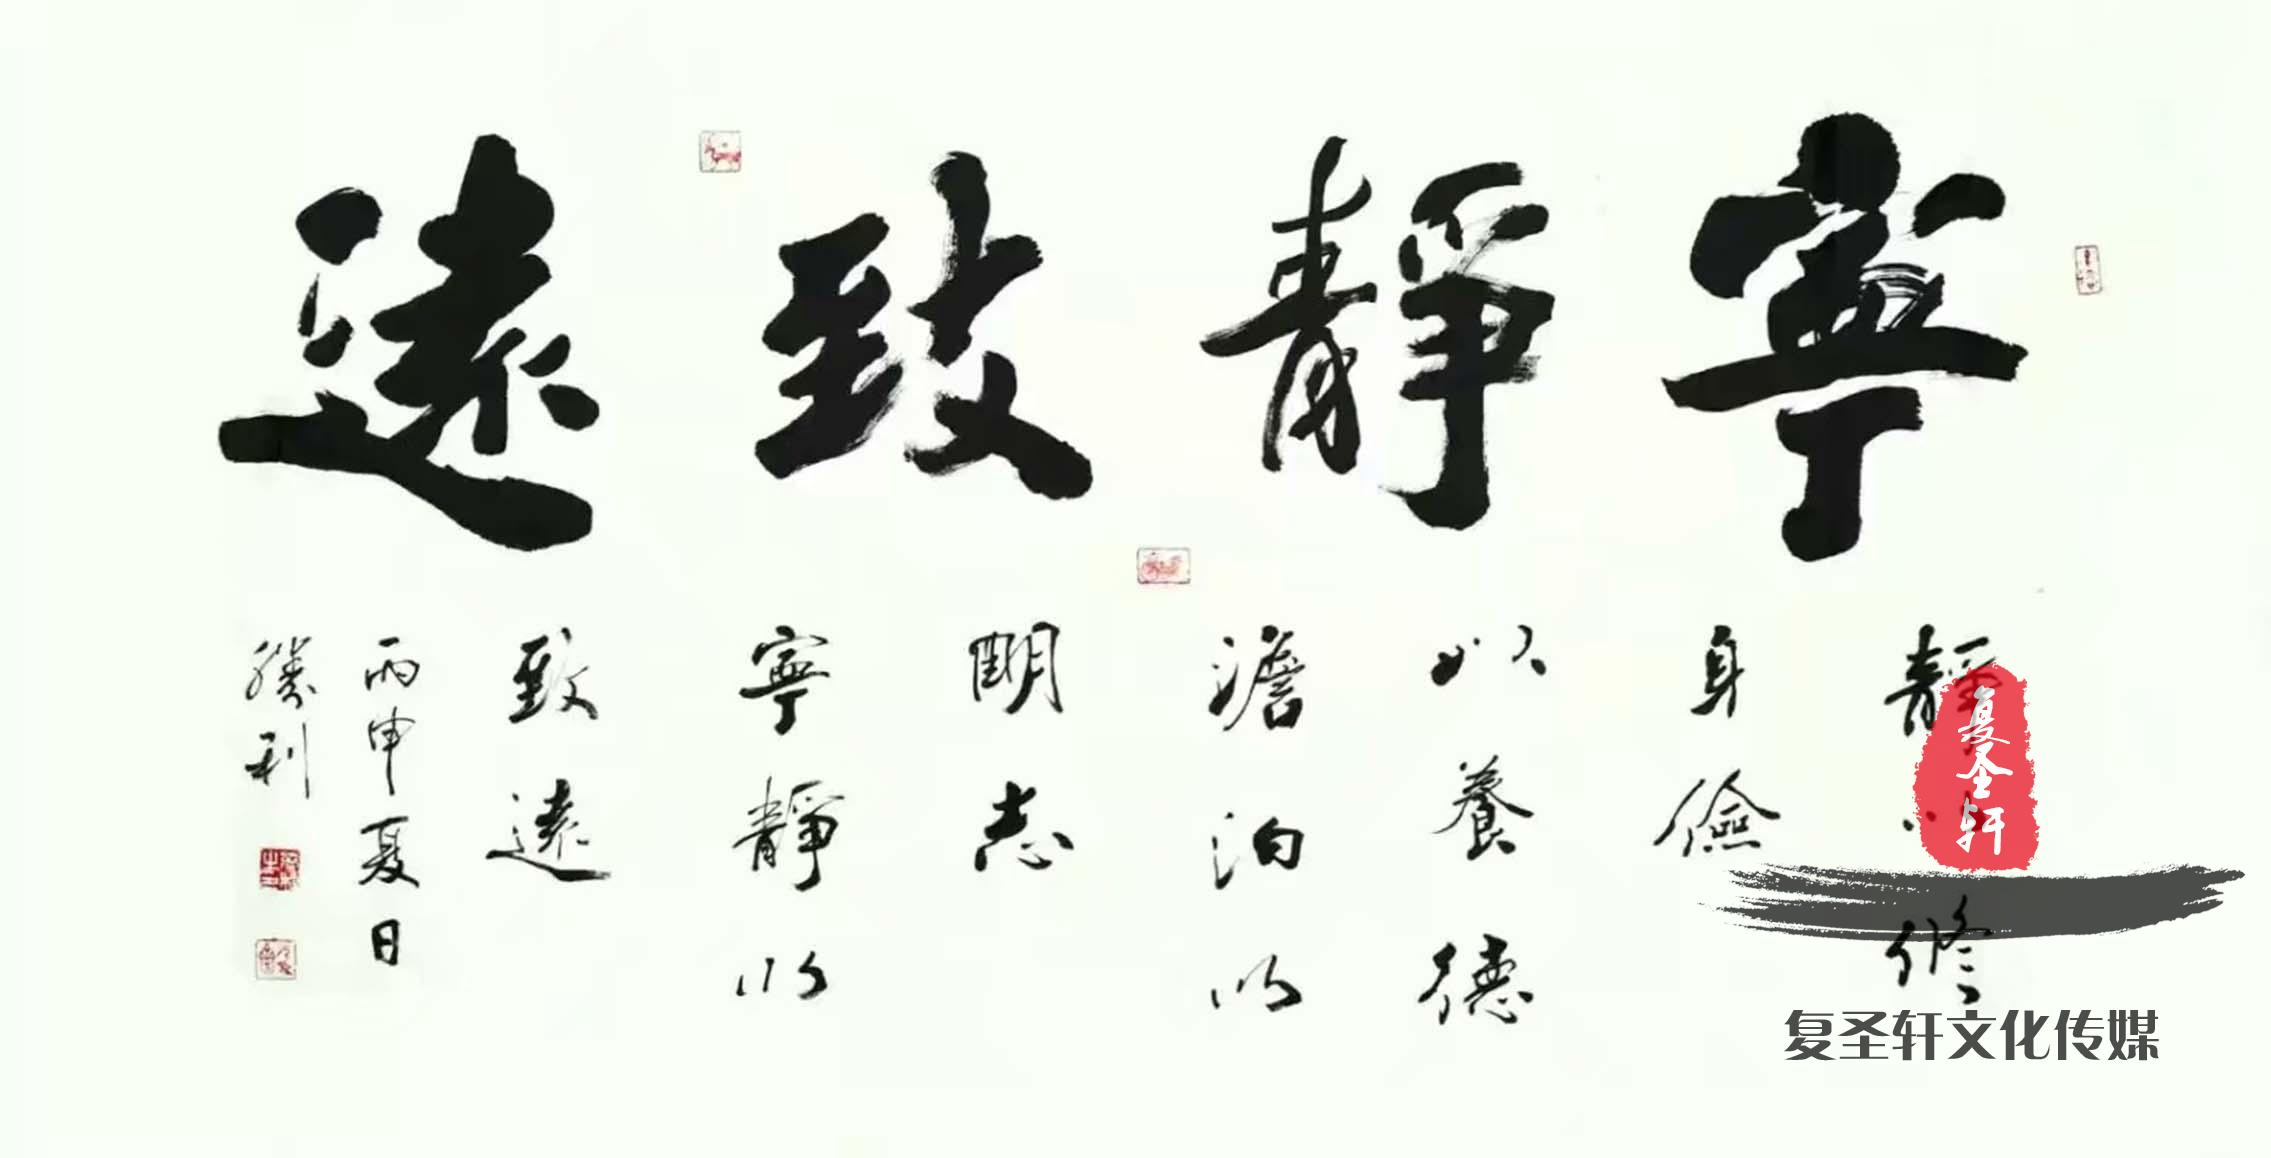 寧靜致遠
靜以修
身儉
以養德
澹泊以
明志
寧靜以
致遠
丙申夏日
勝利
复圣轩
复圣轩文化传媒